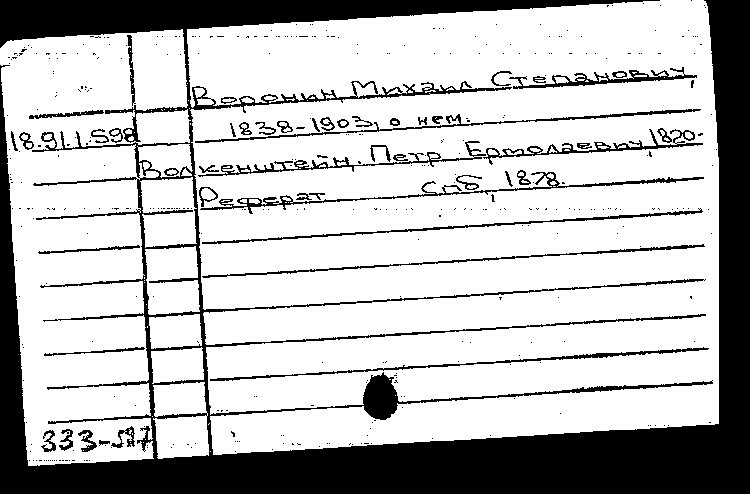 Воронин, Михаил Степанович,
18.91.1.598 1838-1903, о нем.
Волкенштейн, Петр Ермолаевич, 1820-
Реферат Спб, 1878.
333-597